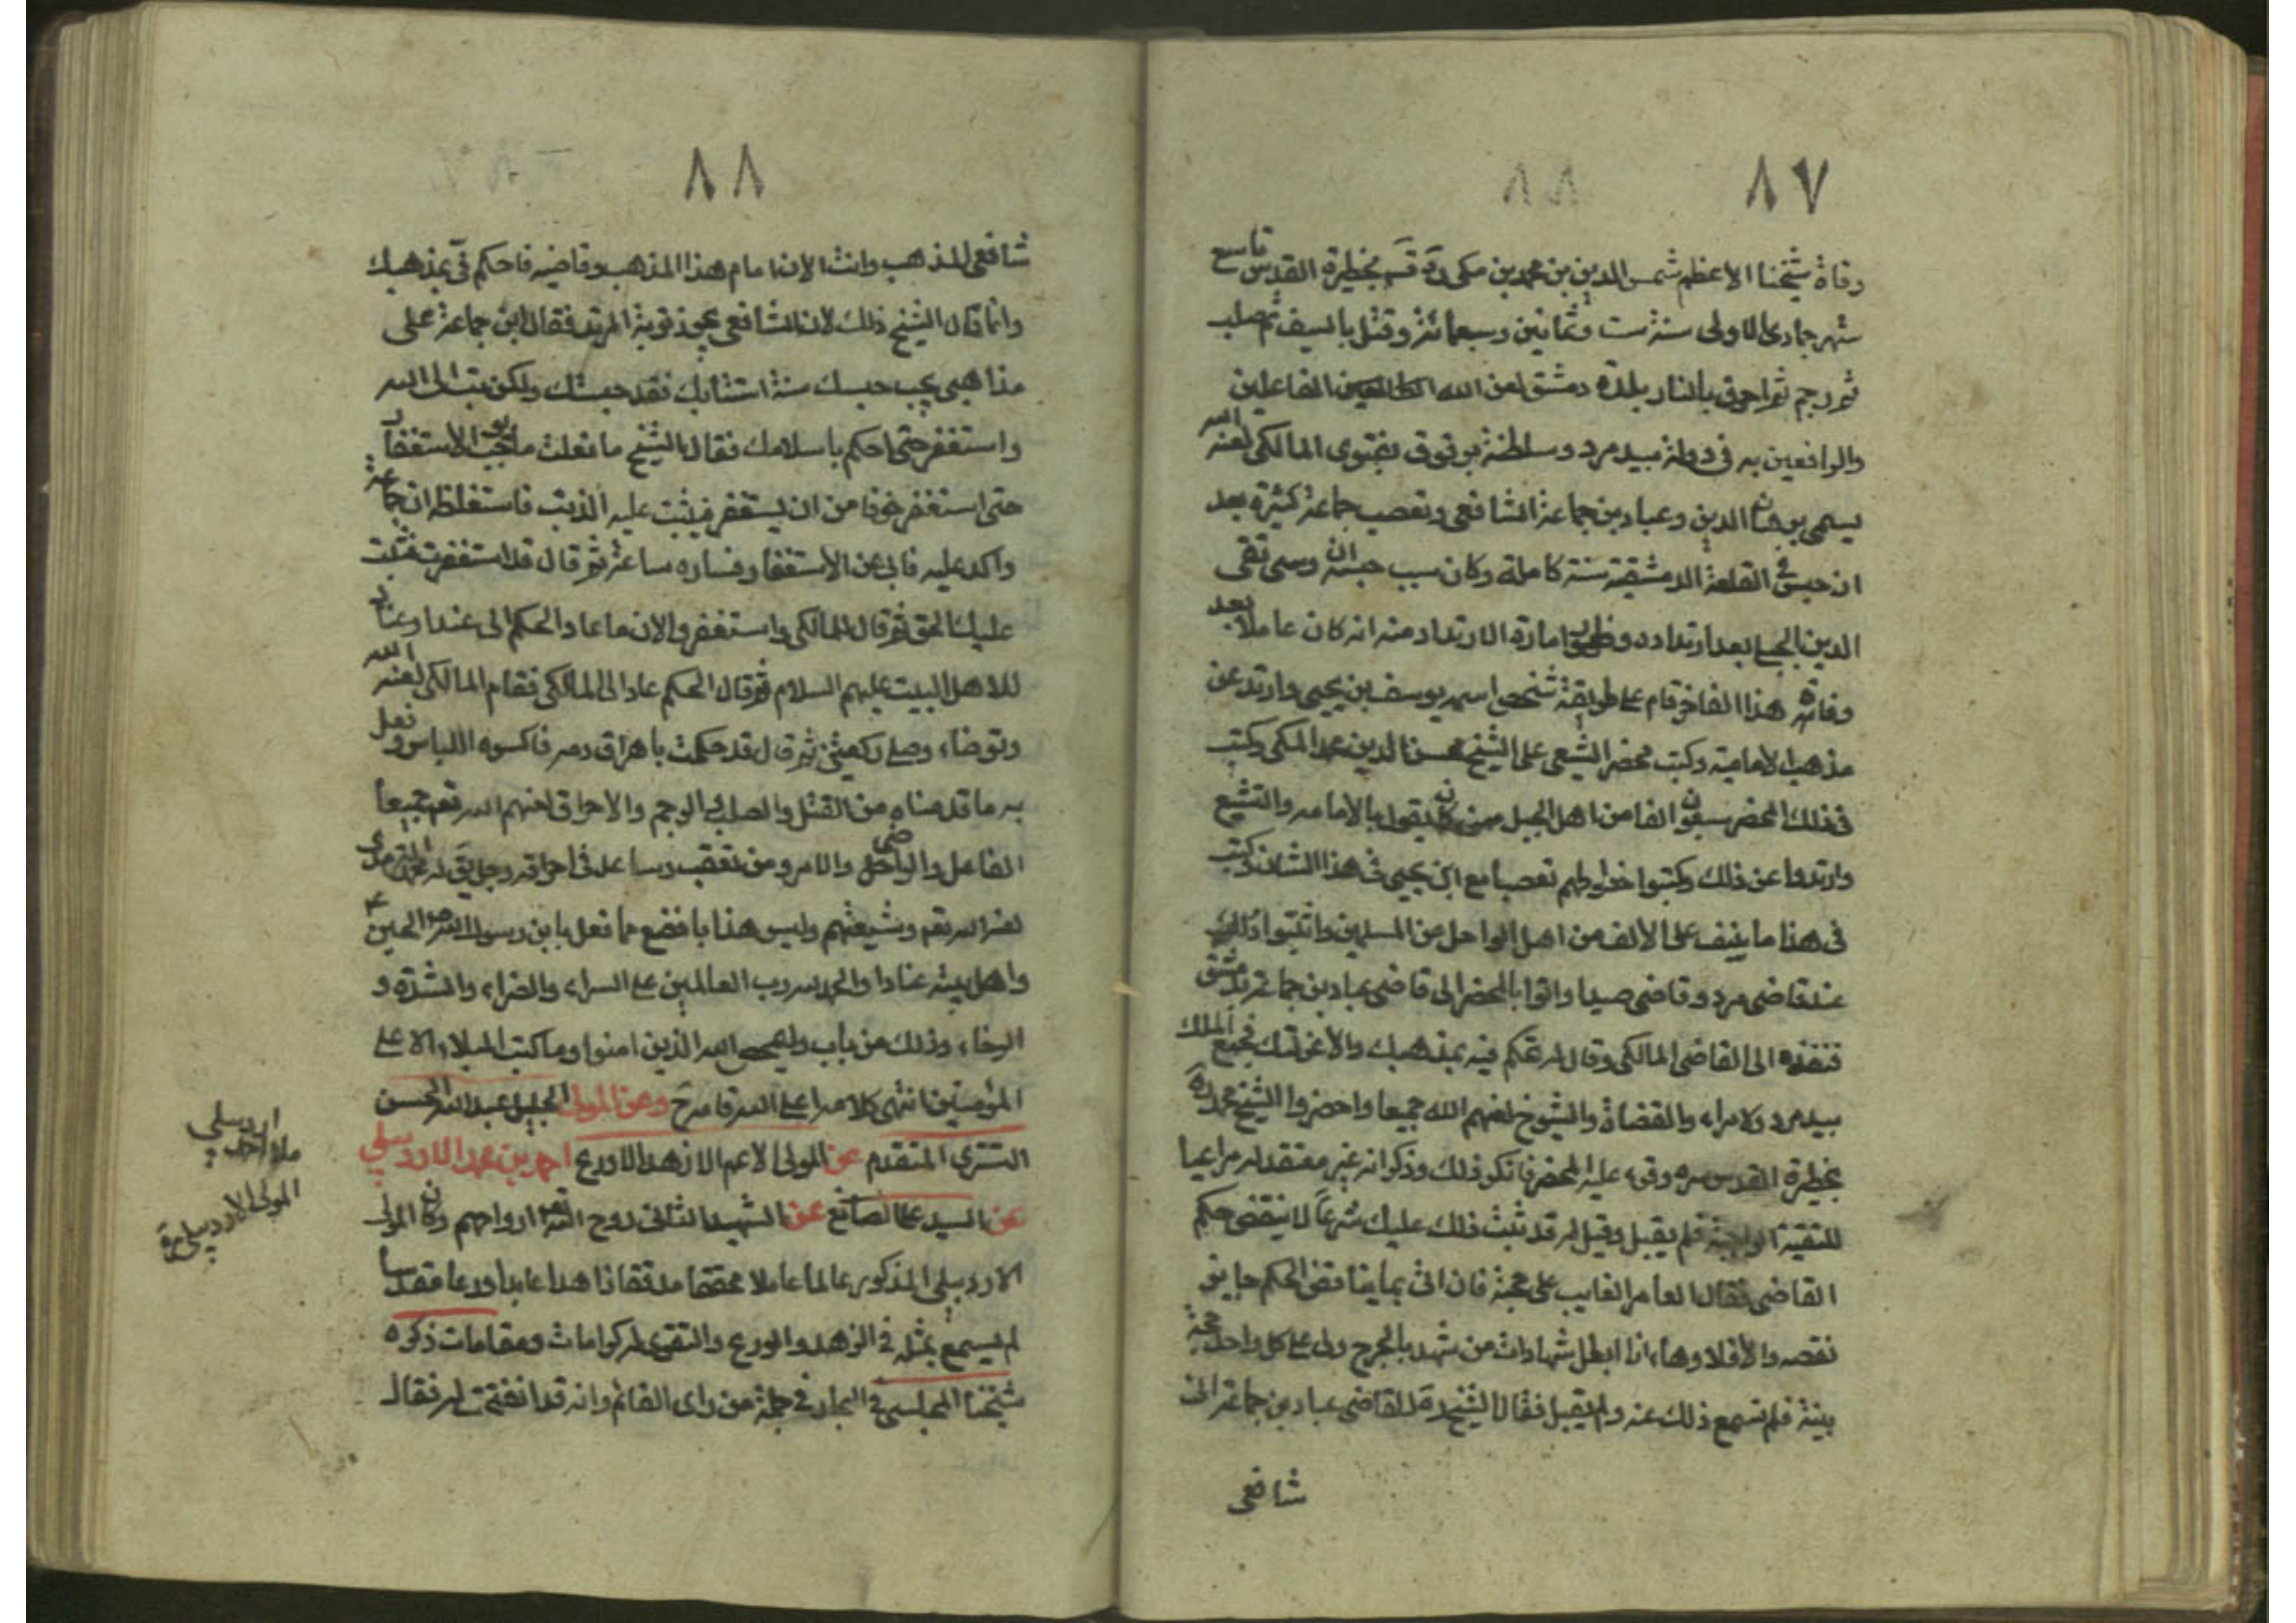 ٨٧
٨٨
وفاة شيخنا الاعظم شمس الدين بن محمد بن مكى بحظيرة القدس تاسع
شهر جمادى الاولى سنة ست وثمانين وسبعمائة وقتل بالسيف ثم صلب
ثم رجم ثم احرق بالنار ببلدة دمشق لعن الله الفاعلين
والراضين به فى دولة بيدمرد وسلطنة برقوق بفتوى المالكى لعنه الله
يسمى برهان الدين وعباد بن جماعة الشافعى وتعصب جماعة كثيرة بعد
ان حبس فى القلعة الدمشقية سنة كاملة وكان سبب حبسه ان وسى تقى
الدين الجبلى بعد ارتداده وظهور امارة الارتداد منه انه كان عاملا بعد
وفاته هذا الفاخر قام على طريقة شخص اسمه يوسف بن يحيى وارتد عن
مذهب الامامية وكتب محضر الشيعى على الشيخ شمس الدين محمد المكى وكتب
فى ذلك المحضر سبعون الفا من اهل الجبل ممن كان يقول بالامامه والتشيع
وارتدوا عن ذلك وكتبوا خطوطهم تعصبا مع ابن يحيى فى هذا الشان وكتب
فى هذا ما ينيف على الالف من اهل السواحل من المسلمين واثبتوا ذلك
عند قاضى مرد وقاضى صيدا واتوا بالمحضر الى قاضى عباد بن جماعة بدمشق
فنفذه الى القاضى المالكى وقال له تحكم فيه بمذهبك والا عزلتك فجمع الملك
بيدمرد والامراء والقضاة والشيوخ لعنهم الله جميعا واحضروا الشيخ محمد ره
بحظيرة القدس سره وقرء عليه المحضر فانكر ذلك وذكر انه غير معتقد له مراعيا
للتقية الواجبة فلم يقبل وقيل له قد ثبت ذلك عليك شرعاً لا ينتقض حكم
القاضى فقال العامر الغايب على حجته فان اتى بما يناقض الحكم جاز
نقصه والا فلا وها انا ابطل شهادات من شهد بالجرح ولى على كل واحد حجة
بينة فلم تسمع ذلك عنه ولم يقبل فقال الشيخ للقاضى عباد بن جماعة انى
شافعى
٨٨
شافعى المذهب وانت الان امام هذا المذهب وقاضيه فاحكم فىّ بمذهبك
وانما قال الشيخ ذلك لان الشافعى يجوز توبة المرتد فقال ابن جماعة على
مذاهبى يجب حبسك سنة استتابك فقد حبستك ولكن تب الى الله
واستغفر حتى احكم باسلامك فقال الشيخ ما فعلت ما يوجب الاستغفار
حتى استغفر خوفا من ان يستغفر فيثبت عليه الذنب فاستغلظه ابن جماعة
واكد عليه فابى عن الاستغفار فساره ساعة ثم قال قد استغفرت فثبت
عليك الحق ثم قال للمالكى واستغفر والان ما عاد الحكم الى عندا وعنادا
للاهل البيت عليهم السلام ثم قال الحكم عاد الى المالكى فقام المالكى لعنه الله
وتوضاء وصلى ركعتين ثم قال قد حكمت باهراق دمه فاكسوه اللباس وفعل
به ما قدمناه من القتل والصلب والرجم والاحراق لعنهم الله تعم جميعا
الفاعل والراضى والامر وممن تعقب وساعد فى احراقه رجل يقال له محمد الترمذى
لعنه الله تعم وشيعتهم وليس هذا بافضع مما فعل بابن رسول الله الحسين
واهل بيته عنادا والحمد لله رب العالمين على السراء والضراء والشدة و
الرخاء وذلك من باب وليمحص الله الذين امنوا وما كتب البلاء الا على
المؤمنين انتهى كلامه اعلى الله مقامه ح وعن المولى الجليل عبد الله الحسن
التسترى المتقدم عن المولى الاعم الازهد الاورع احمد بن محمد الاردبيلى
عن السيد على الصائغ عن الشهيد الثانى روح الله ارواحهم وكان المولى
الاردبيلى المذكور عالما عاملا محققا مدققا زاهدا عابدا ورعا مقدسا
لم يسمع بمثله فى الزهد والورع والتقوى له كرامات ومقامات ذكره
شيخنا المجلسى فى البحار فى جملة من راى القائم وانه قد انفتحت له فقال
اردبيلى
ملا احمد
المولى الاردبيلى ره